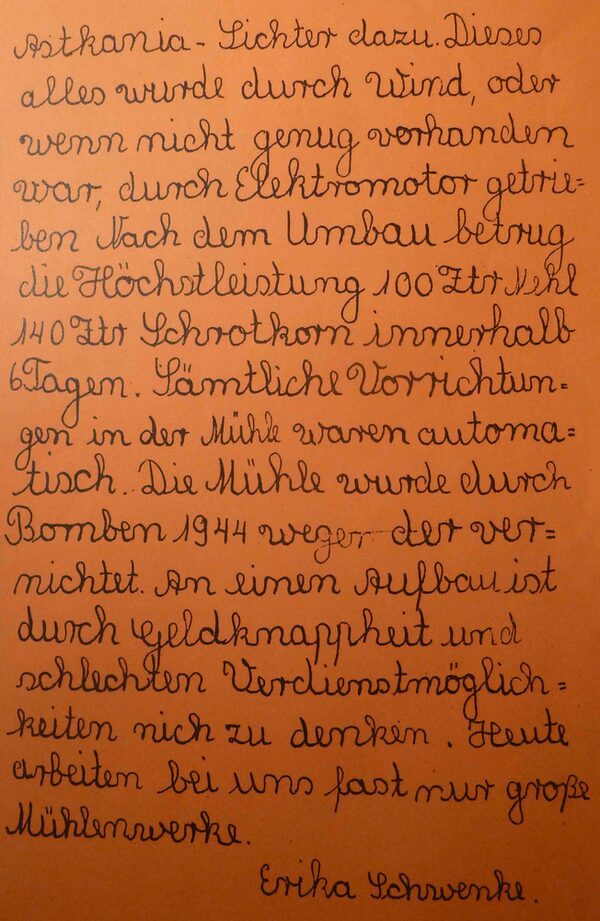 Astkania-Lichter dazu. Dieses
alles wurde durch Wind, oder
wenn nicht genug vorhanden
war, durch Elektromotor getrie=
ben Nach dem Umbau betrug
die Höchstleistung 100 Ztr Mehl
140 Ztr Schrotkorn innerhalb
6 Tagen. Sämtliche Vorrichtun=
gen in der Mühle waren automa=
tisch. Die Mühle wurde durch
Bomben 1944 der ver=
nichtet. An einen Aufbau ist
durch Geldknappheit und
schlechten Verdienstmöglich=
keiten nich zu denken. Heute
arbeiten bei uns fast nur große
Mühlenwerke.
Erika Schwenke.